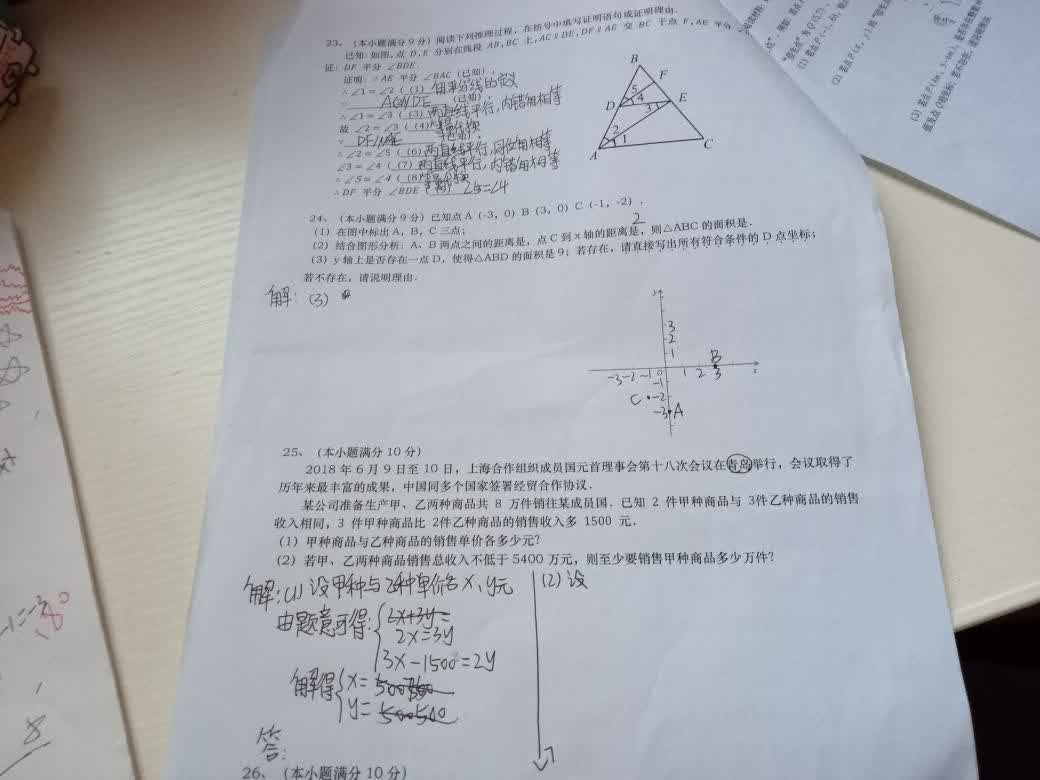 23、（本小题满分 9 分）阅读下列推理过程，在括号中填写证明语句或证明理由．
已知：如图，点 D，E 分别在线段 AB，BC 上，AC∥DE，DF∥AE 交 BC 于点 F，AE 平分
证：DF 平分 ∠BDE．
证明：∵AE 平分 ∠BAC（已知），
∴∠1=∠2（（1）角平分线的定义
∵ AC∥DE （已知），
∴∠1=∠3（（3）两直线平行，内错角相等
故 ∠2=∠3（（4）等量代换
∵ DF∥AE
∴∠2=∠5（（6）两直线平行，同位角相等
∠3=∠4（（7）两直线平行，内错角相等
∴∠5=∠4（（8）等量代换
∴DF 平分 ∠BDE ∠5=∠4
B
F
D
5
4
3
E
2
1
A
C
24、（本小题满分 9 分）已知点 A（-3，0）B（3，0）C（-1，-2）．
（1）在图中标出 A，B，C 三点；
（2）结合图形分析：A、B 两点之间的距离是，点 C 到 x 轴的距离是，则△ABC 的面积是．
2
（3）y 轴上是否存在一点 D，使得△ABD 的面积是 9；若存在，请直接写出所有符合条件的 D 点坐标；
若不存在，请说明理由．
解：(3)
y
3
2
1
B
-3 -2 -1 0 1 2 3
x
-1
C -2
-3 A
25、（本小题满分 10 分）
2018 年 6 月 9 日至 10 日，上海合作组织成员国元首理事会第十八次会议在青岛举行，会议取得了
历年来最丰富的成果，中国同多个国家签署经贸合作协议．
某公司准备生产甲、乙两种商品共 8 万件销往某成员国．已知 2 件甲种商品与 3件乙种商品的销售
收入相同，3 件甲种商品比 2件乙种商品的销售收入多 1500 元．
（1）甲种商品与乙种商品的销售单价各多少元？
（2）若甲、乙两种商品销售总收入不低于 5400 万元，则至少要销售甲种商品多少万件？
解：(1)设甲种与乙种单价各 x、y元
(2)设
由题意可得：2x+3y=
2x=3y
3x-1500=2y
解得 x=
y=
答：
26、（本小题满分 10 分）